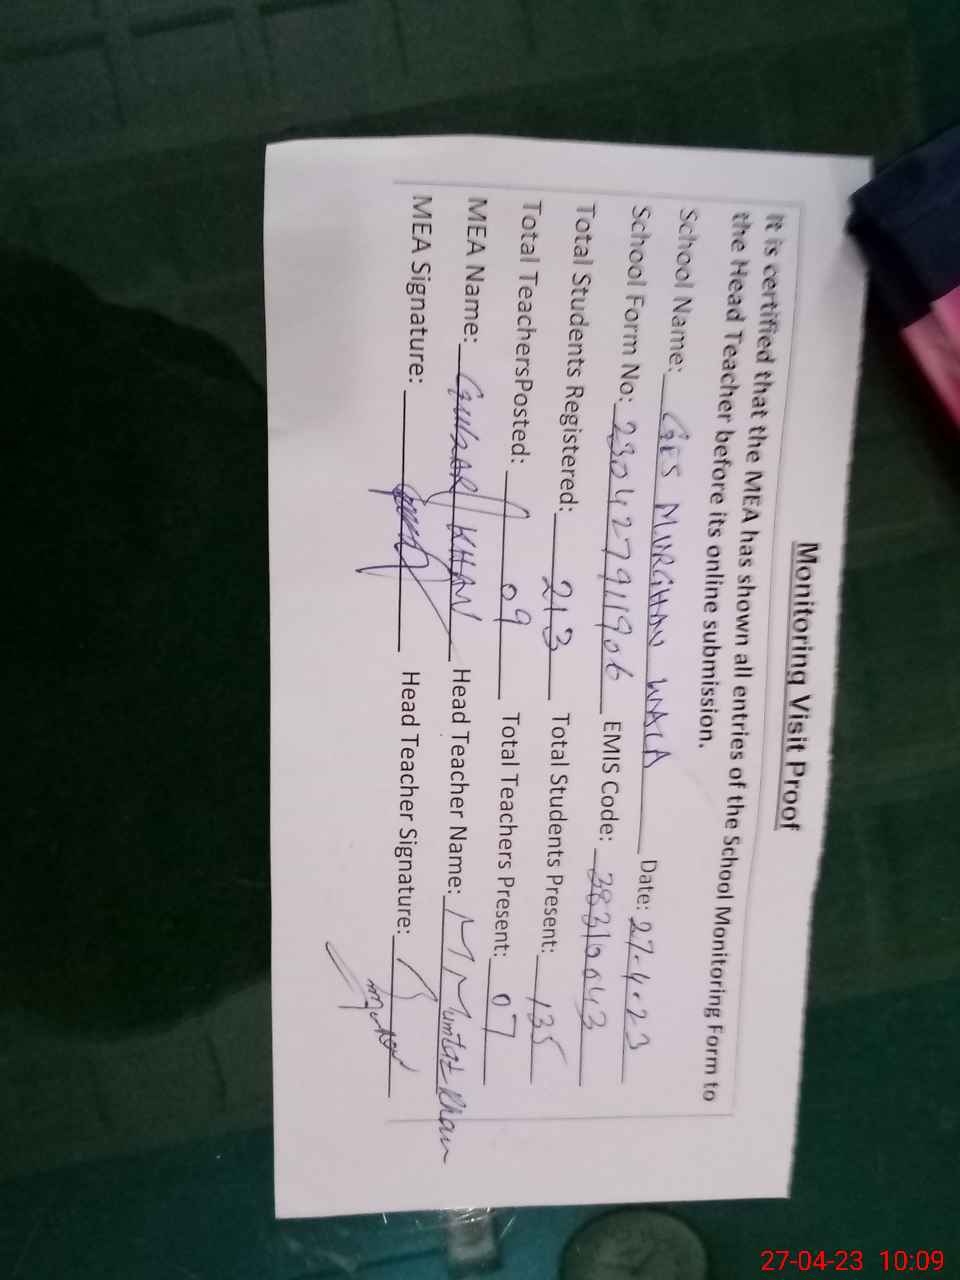 Monitoring Visit Proof
It is certified that the MEA has shown all entries of the School Monitoring Form to
the Head Teacher before its online submission.
School Name: GES MURGHAN WALA Date: 27-4-23
School Form No: 230427911906 EMIS Code: 38310043
Total Students Registered: 213 Total Students Present: 135
Total TeachersPosted: 09 Total Teachers Present: 07
MEA Name: GULZAR KHAN Head Teacher Name: M Mumtaz Khan
MEA Signature: Head Teacher Signature:
27-04-23 10:09